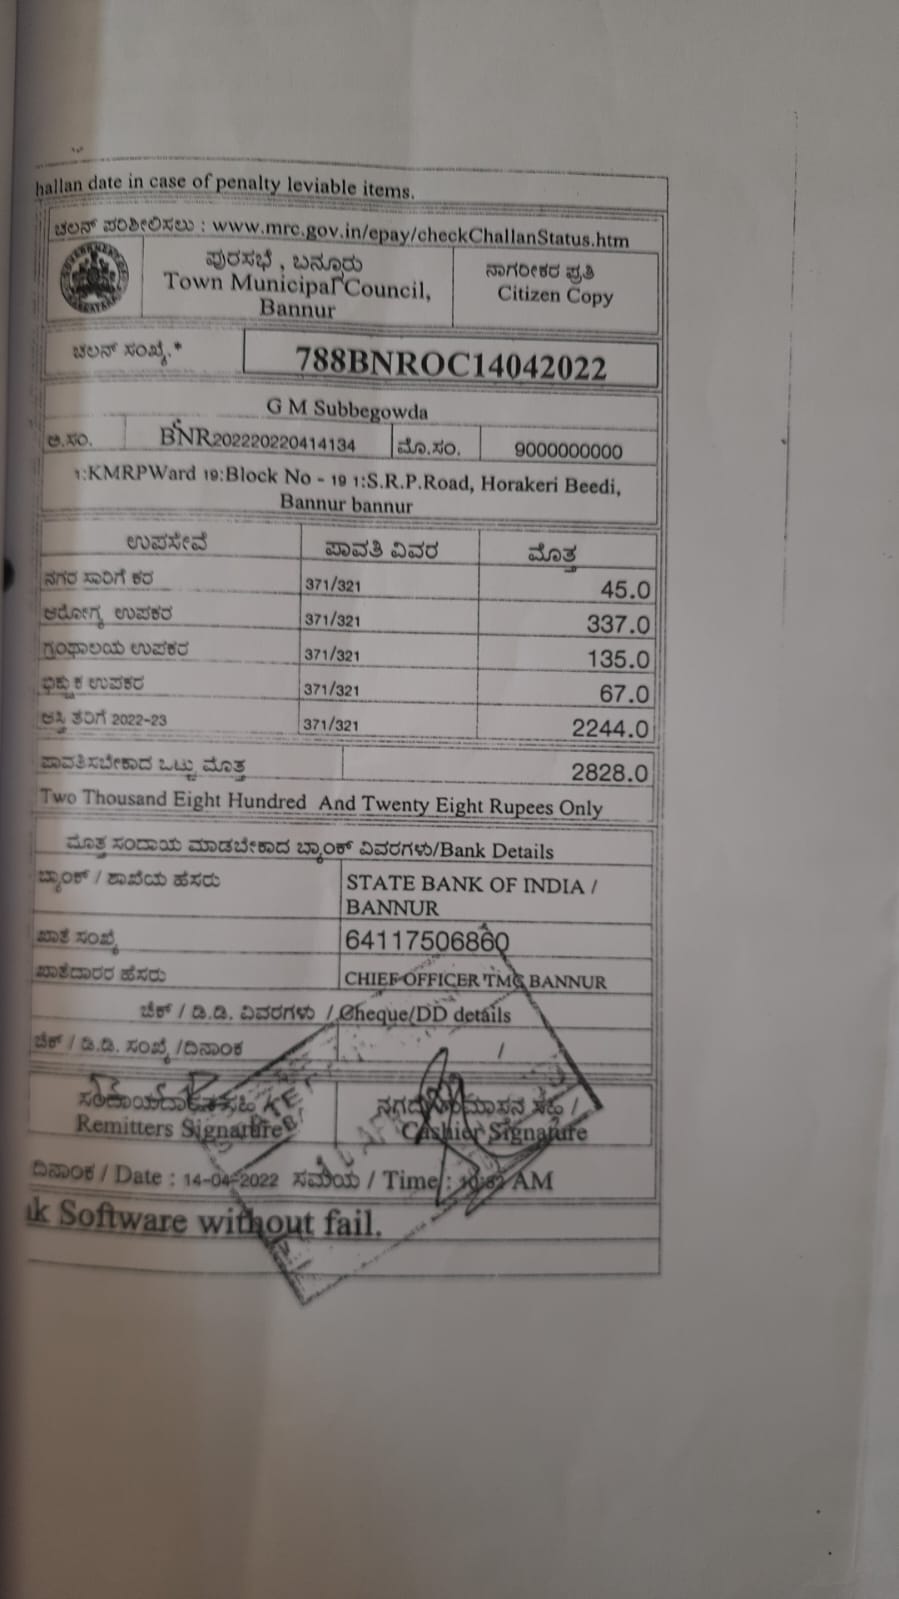 hallan date in case of penalty leviable items.
ಚಲನ್ ಪರಿಶೀಲಿಸಲು : www.mrc.gov.in/epay/checkChallanStatus.htm
ಪುರಸಭೆ , ಬನ್ನೂರು
Town Municipal Council,
Bannur
ನಾಗರೀಕರ ಪ್ರತಿ
Citizen Copy
ಚಲನ್ ಸಂಖ್ಯೆ.* 788BNROC14042022
G M Subbegowda
ಅ.ಸಂ. BNR202220220414134 ಮೊ.ಸಂ. 9000000000
1:KMRPWard 19:Block No - 19 1:S.R.P.Road, Horakeri Beedi,
Bannur bannur
ಉಪಸೇವೆ ಪಾವತಿ ವಿವರ ಮೊತ್ತ
ನಗರ ಸಾರಿಗೆ ಕರ 371/321 45.0
ಆರೋಗ್ಯ ಉಪಕರ 371/321 337.0
ಗ್ರಂಥಾಲಯ ಉಪಕರ 371/321 135.0
ಭಿಕ್ಷುಕ ಉಪಕರ 371/321 67.0
ಆಸ್ತಿ ತೆರಿಗೆ 2022-23 371/321 2244.0
ಪಾವತಿಸಬೇಕಾದ ಒಟ್ಟು ಮೊತ್ತ 2828.0
Two Thousand Eight Hundred And Twenty Eight Rupees Only
ಮೊತ್ತ ಸಂದಾಯ ಮಾಡಬೇಕಾದ ಬ್ಯಾಂಕ್ ವಿವರಗಳು/Bank Details
ಬ್ಯಾಂಕ್ / ಶಾಖೆಯ ಹೆಸರು STATE BANK OF INDIA /
BANNUR
ಖಾತೆ ಸಂಖ್ಯೆ 64117506860
ಖಾತೆದಾರರ ಹೆಸರು CHIEF OFFICER TMC BANNUR
ಚೆಕ್ / ಡಿ.ಡಿ. ವಿವರಗಳು / Cheque/DD details
ಚೆಕ್ / ಡಿ.ಡಿ. ಸಂಖ್ಯೆ /ದಿನಾಂಕ /
Remitters Signature Cashier Signature
ದಿನಾಂಕ / Date : 14-04-2022 ಸಮಯ / Time : AM
Software without fail.